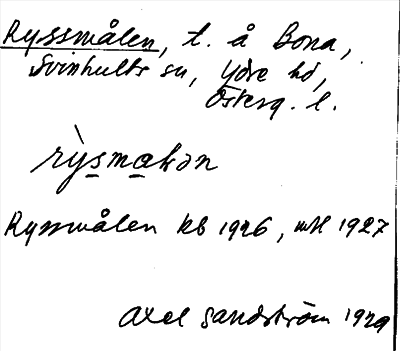 Ryssmålen, t. å Bona,
Svinhults sn, Ydre hd,
Österg. l.
rỳsmakan
Ryssmålen kb 1926, mtl 1927
Axel Sandström 1929